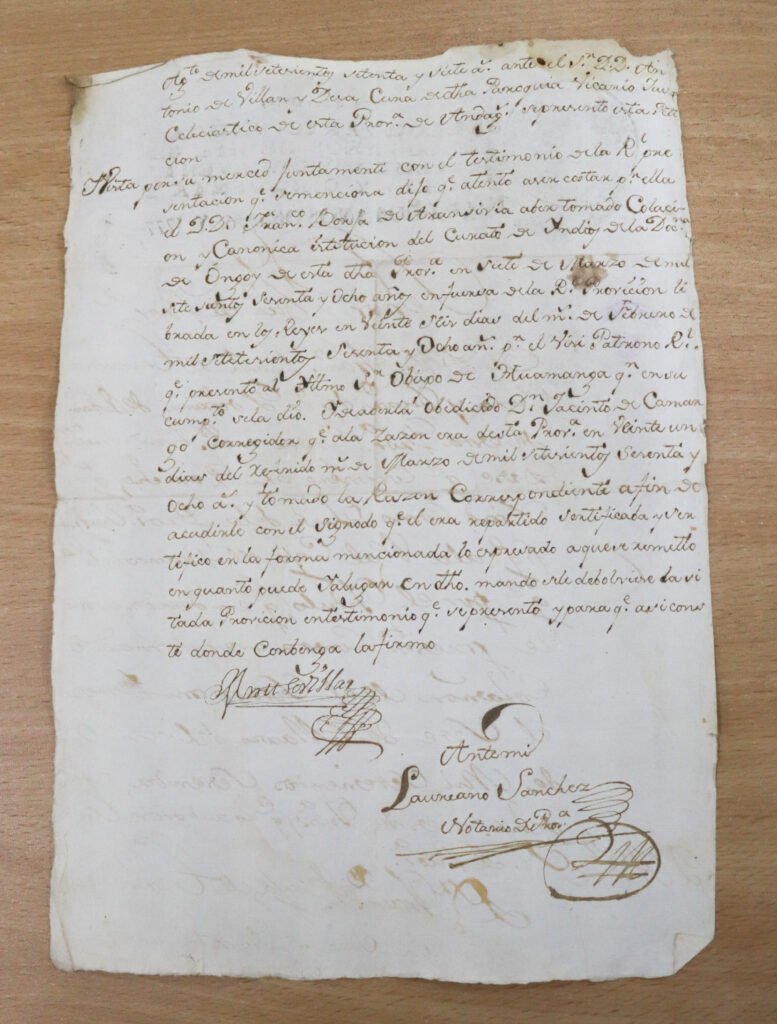 Agto de mil setesientos setenta y siete as. ante el Sr. D.D. An
tonio de Villar y Desa Cura de dha Parroquia Vicario Jues
Celeciastico de esta Prova. de Andags. se presento esta Peti
cion
Vista por su merced juntamente con el testimonio de la Rl. pre
sentacion qe. se menciona dijo qe. atento aser costar pr. ella
el D.D. Franco. de Aransivia aber tomado Colaci
on y Canonica istitucion del Curato de Indios de la Doca.
de Ongoy de esta dha Prova. en siete de Marzo de mil
setesientos Sesenta y Ocho años en fuersa de la Rl. Provicion li
brada en los Reyes en Veinte seis dias del ms. de Febrero de
mil setesientos Sesenta y Ocho as. pr. el Vise Patrono Rl.
qe. presentó al Yltmo Sr. Obispo de Huamanga qn. en su
cumpto. se la dió. obedicido Dn. Jacinto de Camar
go Corregidor qe. ala Zazon era desta Prova. en Veinte un
dias del referido ms. de Marzo de mil setesientos Sesenta y
Ocho as. y tomado la Razon Correspondiente a fin de
acudirle con el signodo qe. el era repartido sertificada y ser
tefico en la forma mencionada lo espresado a que se remetto
en quanto puede ialugar en dho. mando se le debolviese la si
tada Provicion entestimonio qe. se presentó y para qe. asi cons
te donde Conbenga la firmo
Antemi
Laureano Sanchez
Notario de Prova.